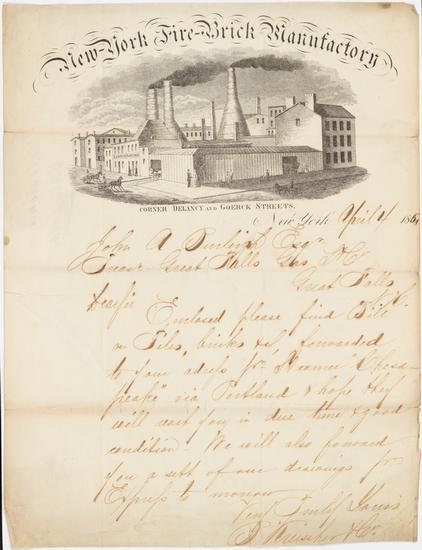 New-York Fire-Brick Manufactory
CORNER DELANCY AND GOERCK STREETS.
New York April 4 186
John A Burleigh Esqr
Treasr Great Falls Gas Co
Great Falls
Dear Sir
Enclosed please find Bill
on Tiles, bricks &c forwarded
to your adress pr. Steamer "Chesa-
peake" via Portland & hope they
will reach you in due time & good
condition - We will also forward
you a sett of our drawings pr
Express to morrow
Very Truly Yours
B Kreischer & Co.